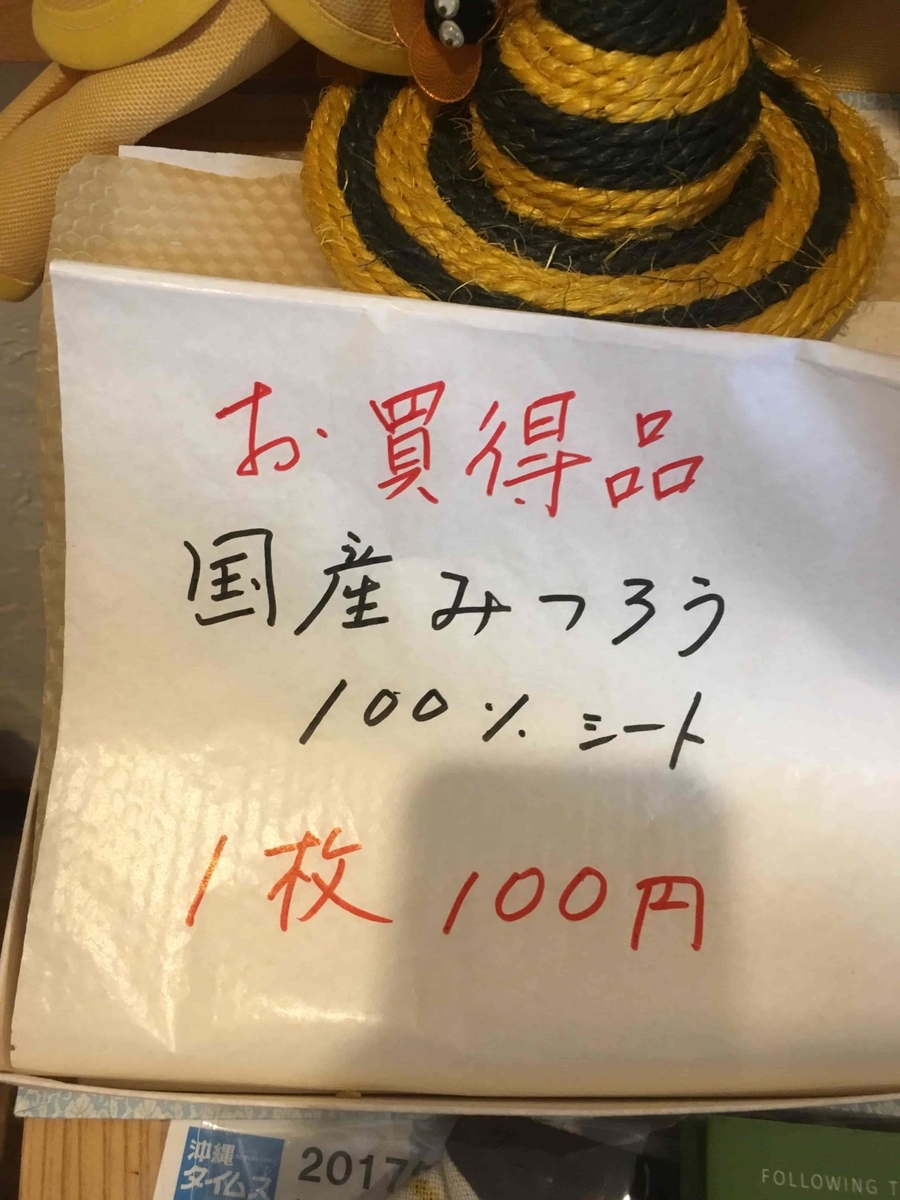 お買得品
国産みつろう
100% シート
1枚 100円
沖縄
タイムス
2017
FOLLOWING T